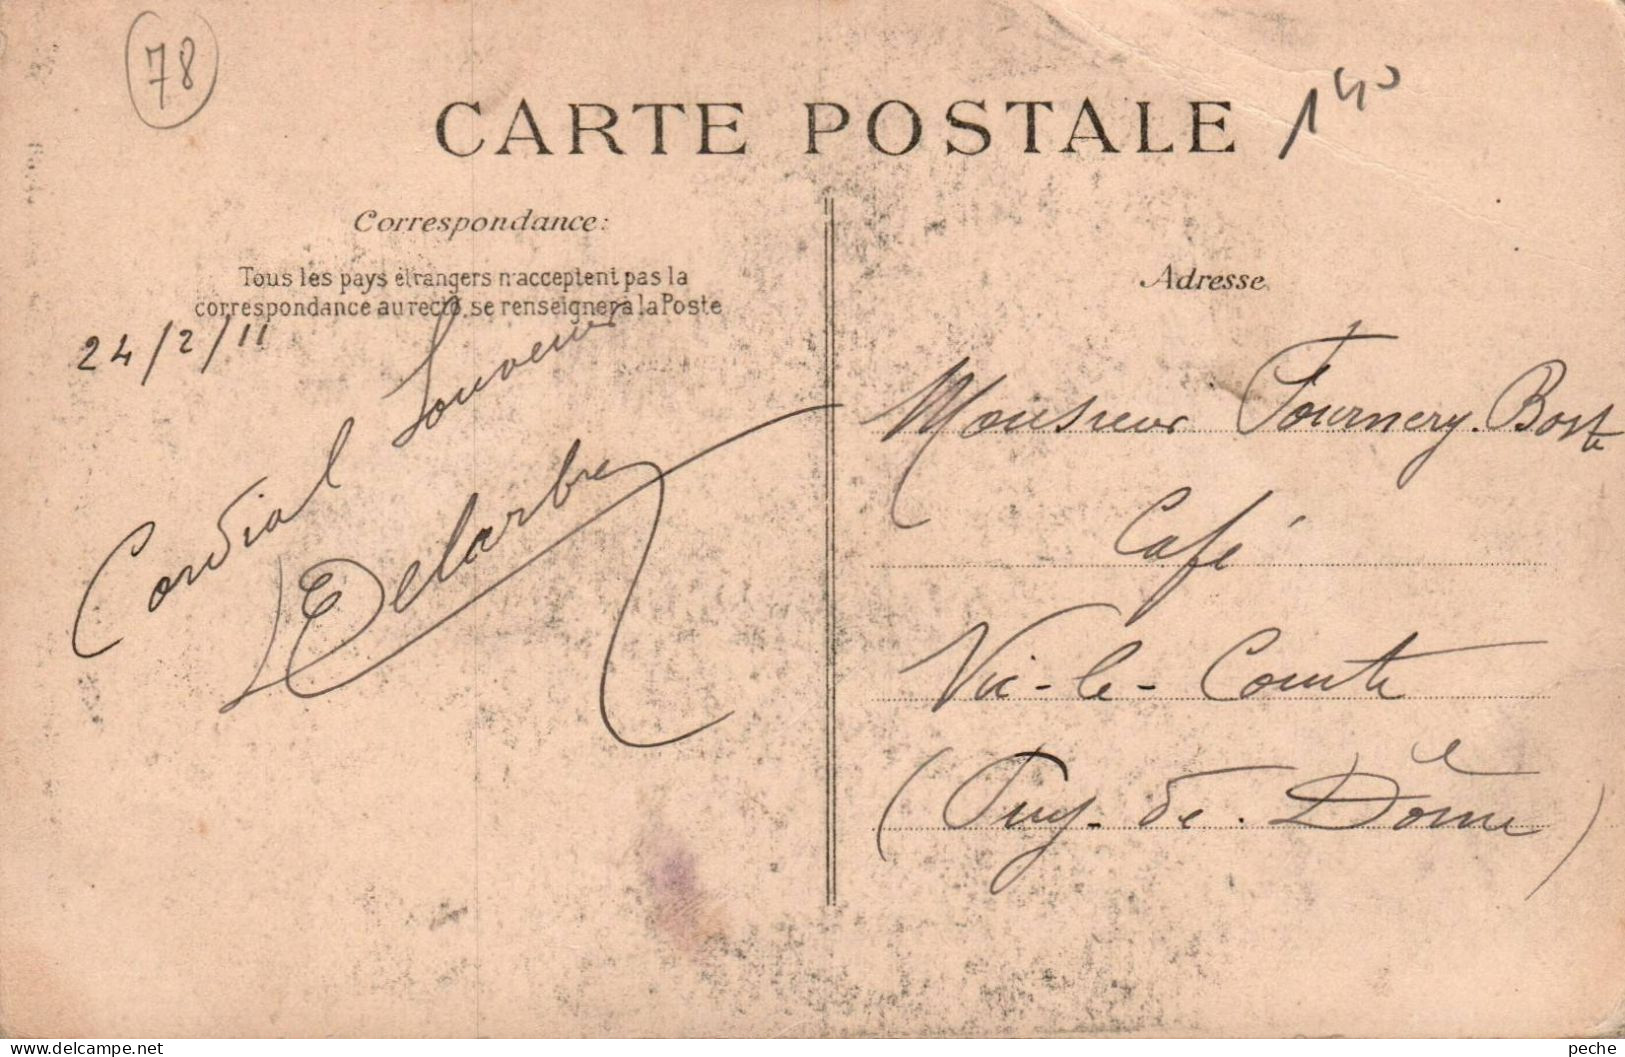 78
CARTE POSTALE
140
Correspondance:
Tous les pays étrangers n'acceptent pas la
correspondance au recto, se renseigner à la Poste
24/2/11
Cordial Souvenir
Delarbre
Adresse
Monsieur Fournery. Boste
Café
Vic-le-Comte
(Puy-de-Dôme)
delcampe.net
peche